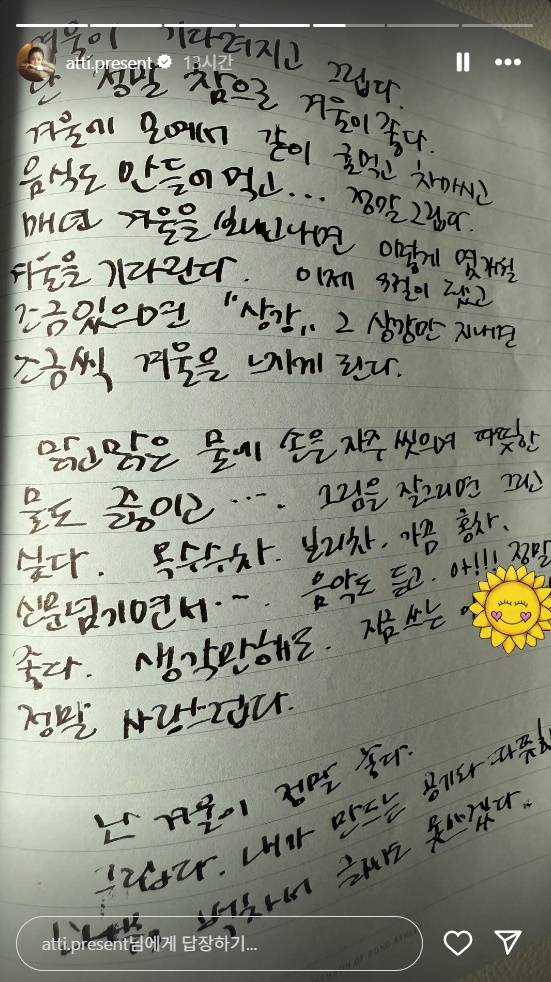 atti.present 13시간
겨울이 기다려지고 그립다.
난 정말 참으로 겨울이 좋다.
겨울에 모여서 같이 귤먹고 차마시고
음식도 만들어 먹고... 정말 그립다.
매년 겨울을 보내고나면 이렇게 몇개월
겨울을 기다린다. 이제 9월이 됐고
조금있으면 "상강" 그 상강만 지나면
조금씩 겨울을 느끼게 된다.
맑고맑은 물에 손을 자주 씻으며 따뜻한
물도 끓이고 .... 그림을 잘그리면 그리고
싶다. 옥수수차. 보리차. 가끔 홍차.
신문넘기면서.... 음악도 듣고. 아!!! 정말
좋다. 생각만해도. 지금 쓰는
정말 사랑스럽다.
난 겨울이 정말 좋다.
그립다. 내가 만드는 공기와 따뜻함
벅차서 글씨도 못쓰겠다.
atti.present님에게 답장하기...